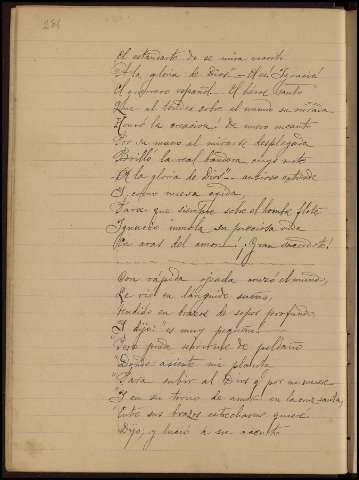 El estandarte do se mira escrito
"A la gloria de Dios" — Así Ignacio
El guerrero español. El héroe santo
Que al tender sobre el mundo su mirada
la creacion! De nuevo
Por su mano al mirarse desplegada
Brilló la real bandera cuyo mote
"A la gloria de Dios" — ansioso
Y, como nueva egida,
Para que siempre sobre el hombre flote
Ignacio inmola su preciosa vida
En aras del amor! ¡Gran sacerdote!
Con rápida ojeada cruzó el mundo,
Le vió en lánguido sueño,
en brazos de sopor profundo
Y dijo: "es muy pequeño
"Pero pueda servirme de peldaño
"Donde asiente mi planta
"Para subir al Dios q' por mi muere
"Y en su trono de amor, en la cruz santa,
"Entre sus brazos estrecharme quiere
Dijo, y lució a su